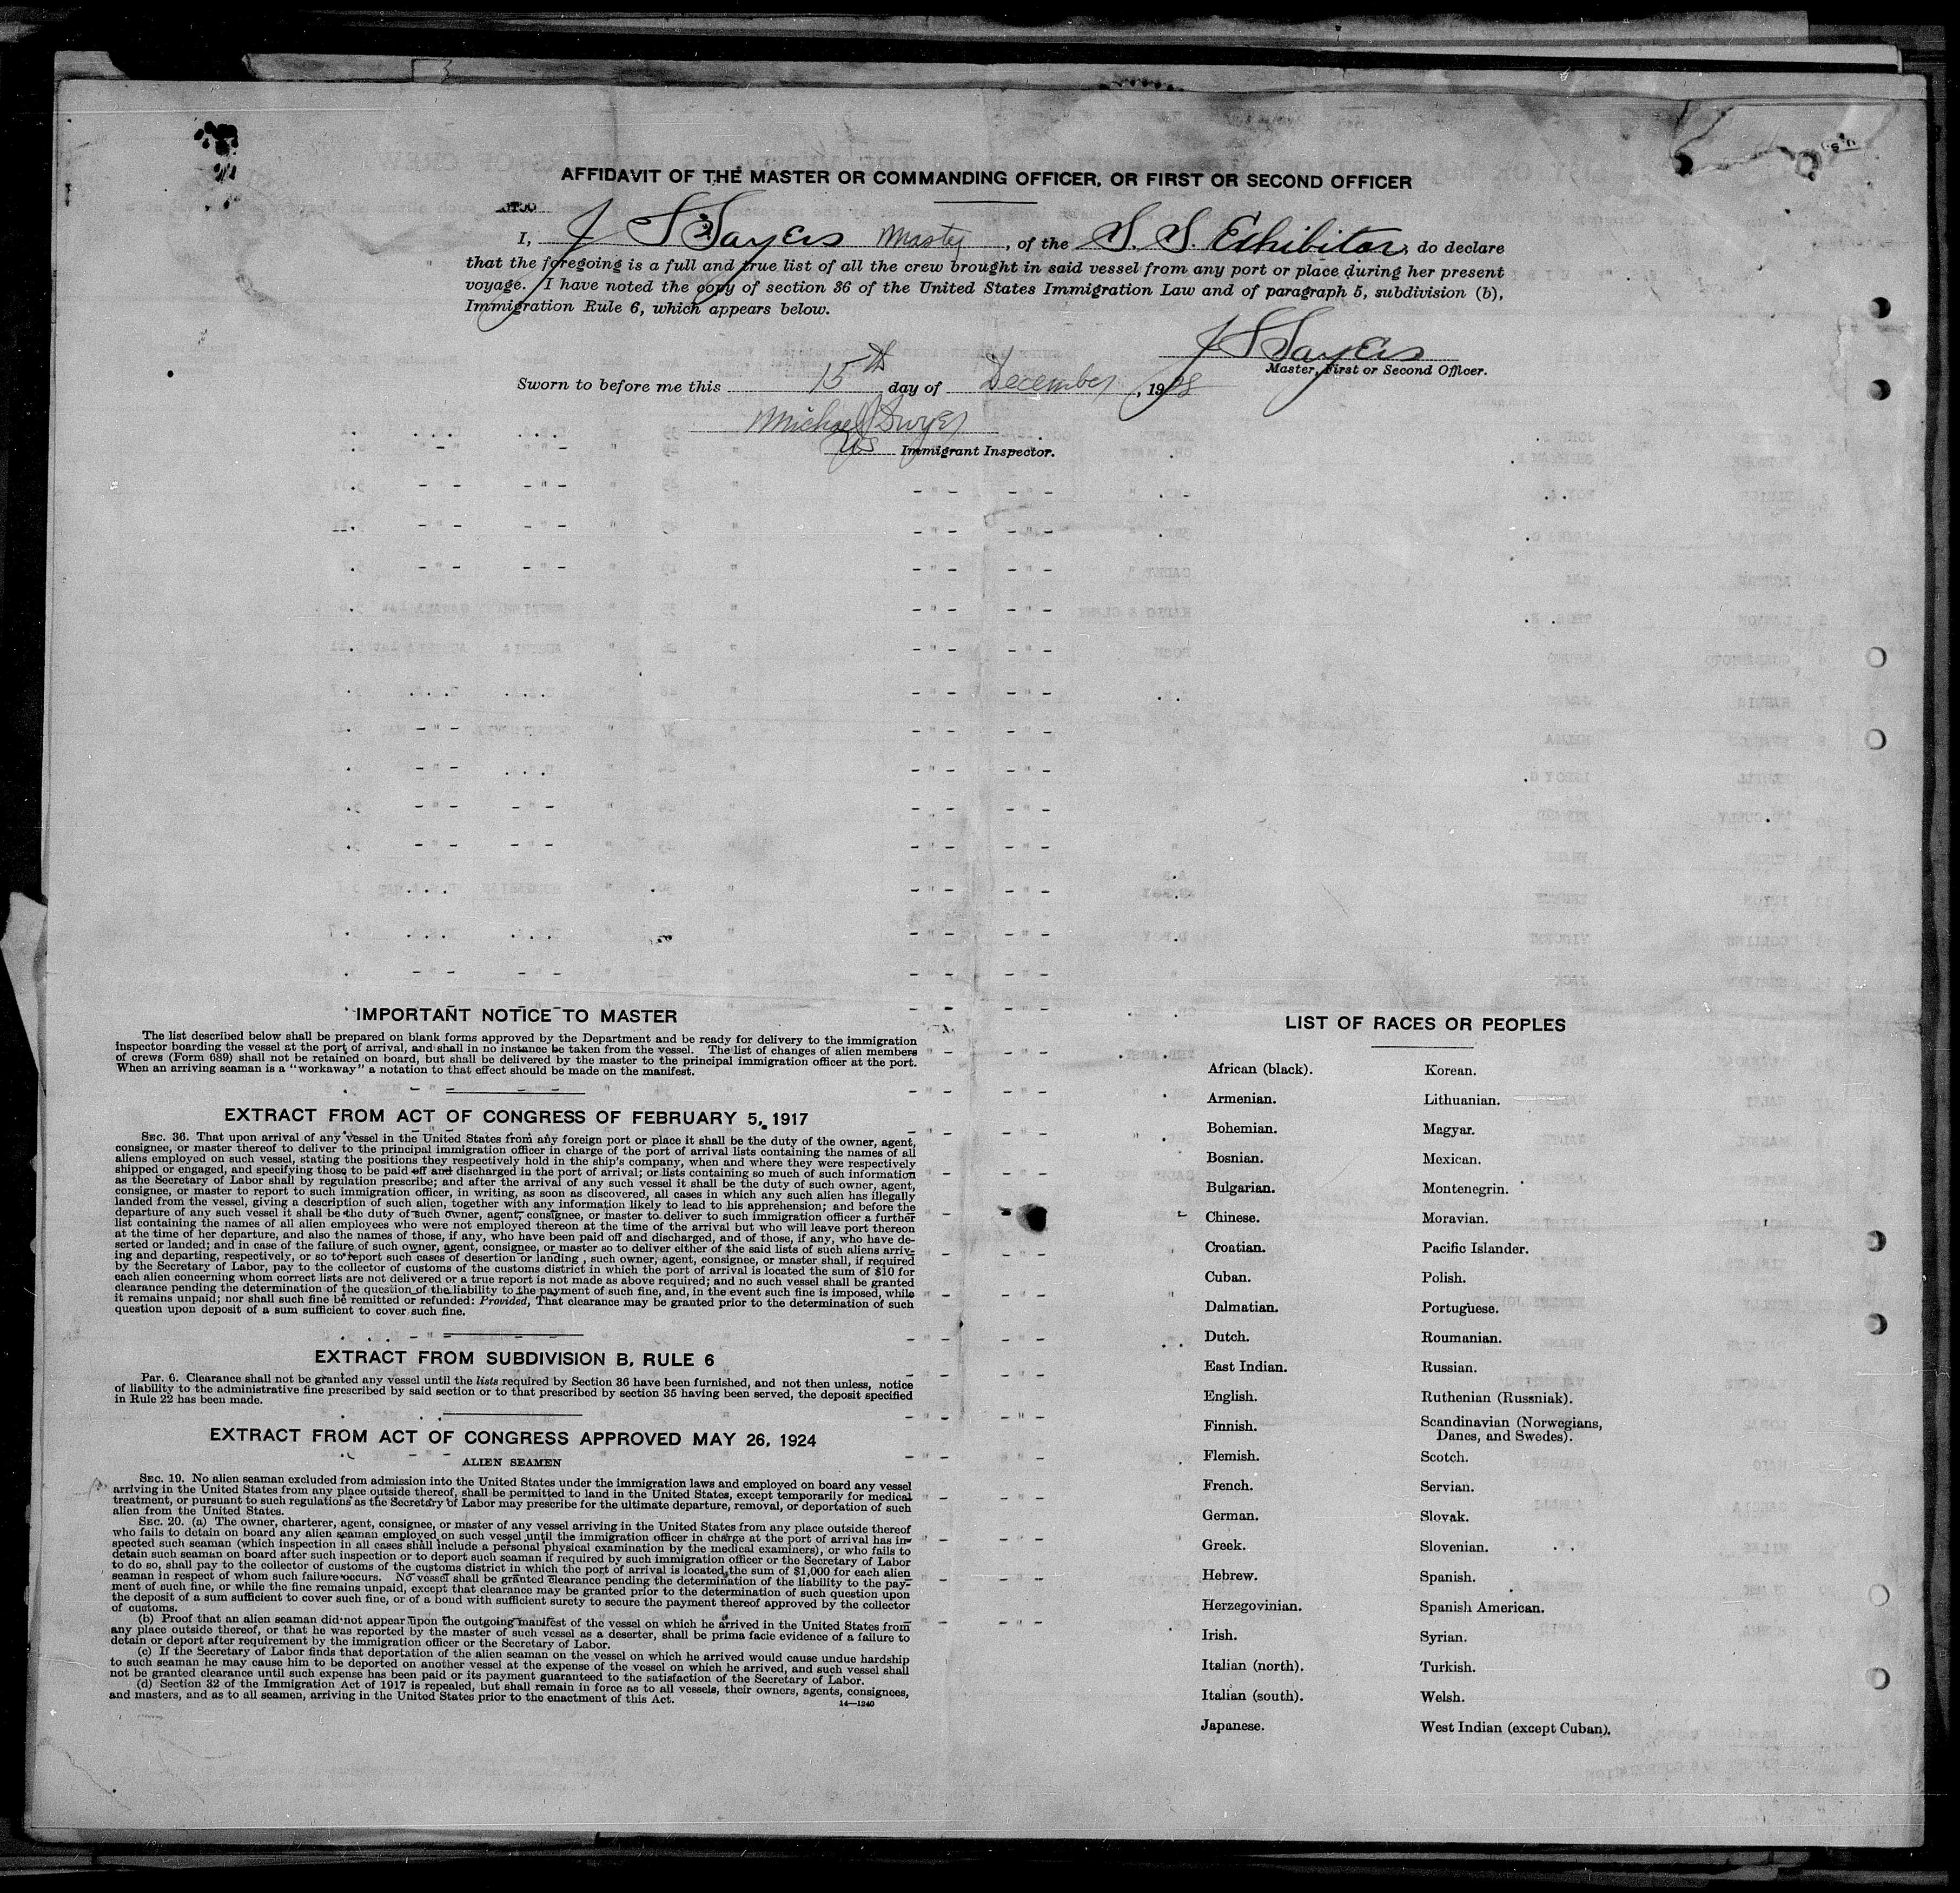 AFFIDAVIT OF THE MASTER OR COMMANDING OFFICER, OR FIRST OR SECOND OFFICER
I, J S Sayers Master, of the S. S. Exhibitor, do declare
that the foregoing is a full and true list of all the crew brought in said vessel from any port or place during her present
voyage. I have noted the copy of section 36 of the United States Immigration Law and of paragraph 5, subdivision (b),
Immigration Rule 6, which appears below.
J S Sayers
Master, First or Second Officer.
Sworn to before me this 15th day of December, 1928
Michael J Dwyer
US Immigrant Inspector.
IMPORTANT NOTICE TO MASTER
The list described below shall be prepared on blank forms approved by the Department and be ready for delivery to the immigration
inspector boarding the vessel at the port of arrival, and shall in no instance be taken from the vessel. The list of changes of alien members
of crews (Form 689) shall not be retained on board, but shall be delivered by the master to the principal immigration officer at the port.
When an arriving seaman is a "workaway" a notation to that effect should be made on the manifest.
EXTRACT FROM ACT OF CONGRESS OF FEBRUARY 5, 1917
SEC. 36. That upon arrival of any vessel in the United States from any foreign port or place it shall be the duty of the owner, agent,
consignee, or master thereof to deliver to the principal immigration officer in charge of the port of arrival lists containing the names of all
aliens employed on such vessel, stating the positions they respectively hold in the ship's company, when and where they were respectively
shipped or engaged, and specifying those to be paid off and discharged in the port of arrival; or lists containing so much of such information
as the Secretary of Labor shall by regulation prescribe; and after the arrival of any such vessel it shall be the duty of such owner, agent,
consignee, or master to report to such immigration officer, in writing, as soon as discovered, all cases in which any such alien has illegally
landed from the vessel, giving a description of such alien, together with any information likely to lead to his apprehension; and before the
departure of any such vessel it shall be the duty of such owner, agent, consignee, or master to deliver to such immigration officer a further
list containing the names of all alien employees who were not employed thereon at the time of the arrival but who will leave port thereon
at the time of her departure, and also the names of those, if any, who have been paid off and discharged, and of those, if any, who have de-
serted or landed; and in case of the failure of such owner, agent, consignee, or master so to deliver either of the said lists of such aliens arriv-
ing and departing, respectively, or so to report such cases of desertion or landing , such owner, agent, consignee, or master shall, if required
by the Secretary of Labor, pay to the collector of customs of the customs district in which the port of arrival is located the sum of $10 for
each alien concerning whom correct lists are not delivered or a true report is not made as above required; and no such vessel shall be granted
clearance pending the determination of the question of the liability to the payment of such fine, and, in the event such fine is imposed, while
it remains unpaid; nor shall such fine be remitted or refunded: Provided, That clearance may be granted prior to the determination of such
question upon deposit of a sum sufficient to cover such fine.
EXTRACT FROM SUBDIVISION B, RULE 6
Par. 6. Clearance shall not be granted any vessel until the lists required by Section 36 have been furnished, and not then unless, notice
of liability to the administrative fine prescribed by said section or to that prescribed by section 35 having been served, the deposit specified
in Rule 22 has been made.
EXTRACT FROM ACT OF CONGRESS APPROVED MAY 26, 1924
ALIEN SEAMEN
SEC. 19. No alien seaman excluded from admission into the United States under the immigration laws and employed on board any vessel
arriving in the United States from any place outside thereof, shall be permitted to land in the United States, except temporarily for medical
treatment, or pursuant to such regulations as the Secretary of Labor may prescribe for the ultimate departure, removal, or deportation of such
alien from the United States.
SEC. 20. (a) The owner, charterer, agent, consignee, or master of any vessel arriving in the United States from any place outside thereof
who fails to detain on board any alien seaman employed on such vessel until the immigration officer in charge at the port of arrival has in-
spected such seaman (which inspection in all cases shall include a personal physical examination by the medical examiners), or who fails to
detain such seaman on board after such inspection or to deport such seaman if required by such immigration officer or the Secretary of Labor
to do so, shall pay to the collector of customs of the customs district in which the port of arrival is located the sum of $1,000 for each alien
seaman in respect of whom such failure occurs. No vessel shall be granted clearance pending the determination of the liability to the pay-
ment of such fine, or while the fine remains unpaid, except that clearance may be granted prior to the determination of such question upon
the deposit of a sum sufficient to cover such fine, or of a bond with sufficient surety to secure the payment thereof approved by the collector
of customs.
(b) Proof that an alien seaman did not appear upon the outgoing manifest of the vessel on which he arrived in the United States from
any place outside thereof, or that he was reported by the master of such vessel as a deserter, shall be prima facie evidence of a failure to
detain or deport after requirement by the immigration officer or the Secretary of Labor.
(c) If the Secretary of Labor finds that deportation of the alien seaman on the vessel on which he arrived would cause undue hardship
to such seaman he may cause him to be deported on another vessel at the expense of the vessel on which he arrived, and such vessel shall
not be granted clearance until such expense has been paid or its payment guaranteed to the satisfaction of the Secretary of Labor.
(d) Section 32 of the Immigration Act of 1917 is repealed, but shall remain in force as to all vessels, their owners, agents, consignees,
and masters, and as to all seamen, arriving in the United States prior to the enactment of this Act.
14—1240
LIST OF RACES OR PEOPLES
African (black). Korean.
Armenian. Lithuanian.
Bohemian. Magyar.
Bosnian. Mexican.
Bulgarian. Montenegrin.
Chinese. Moravian.
Croatian. Pacific Islander.
Cuban. Polish.
Dalmatian. Portuguese.
Dutch. Roumanian.
East Indian. Russian.
English. Ruthenian (Russniak).
Finnish. Scandinavian (Norwegians,
Danes, and Swedes).
Flemish. Scotch.
French. Servian.
German. Slovak.
Greek. Slovenian.
Hebrew. Spanish.
Herzegovinian. Spanish American.
Irish. Syrian.
Italian (north). Turkish.
Italian (south). Welsh.
Japanese. West Indian (except Cuban).